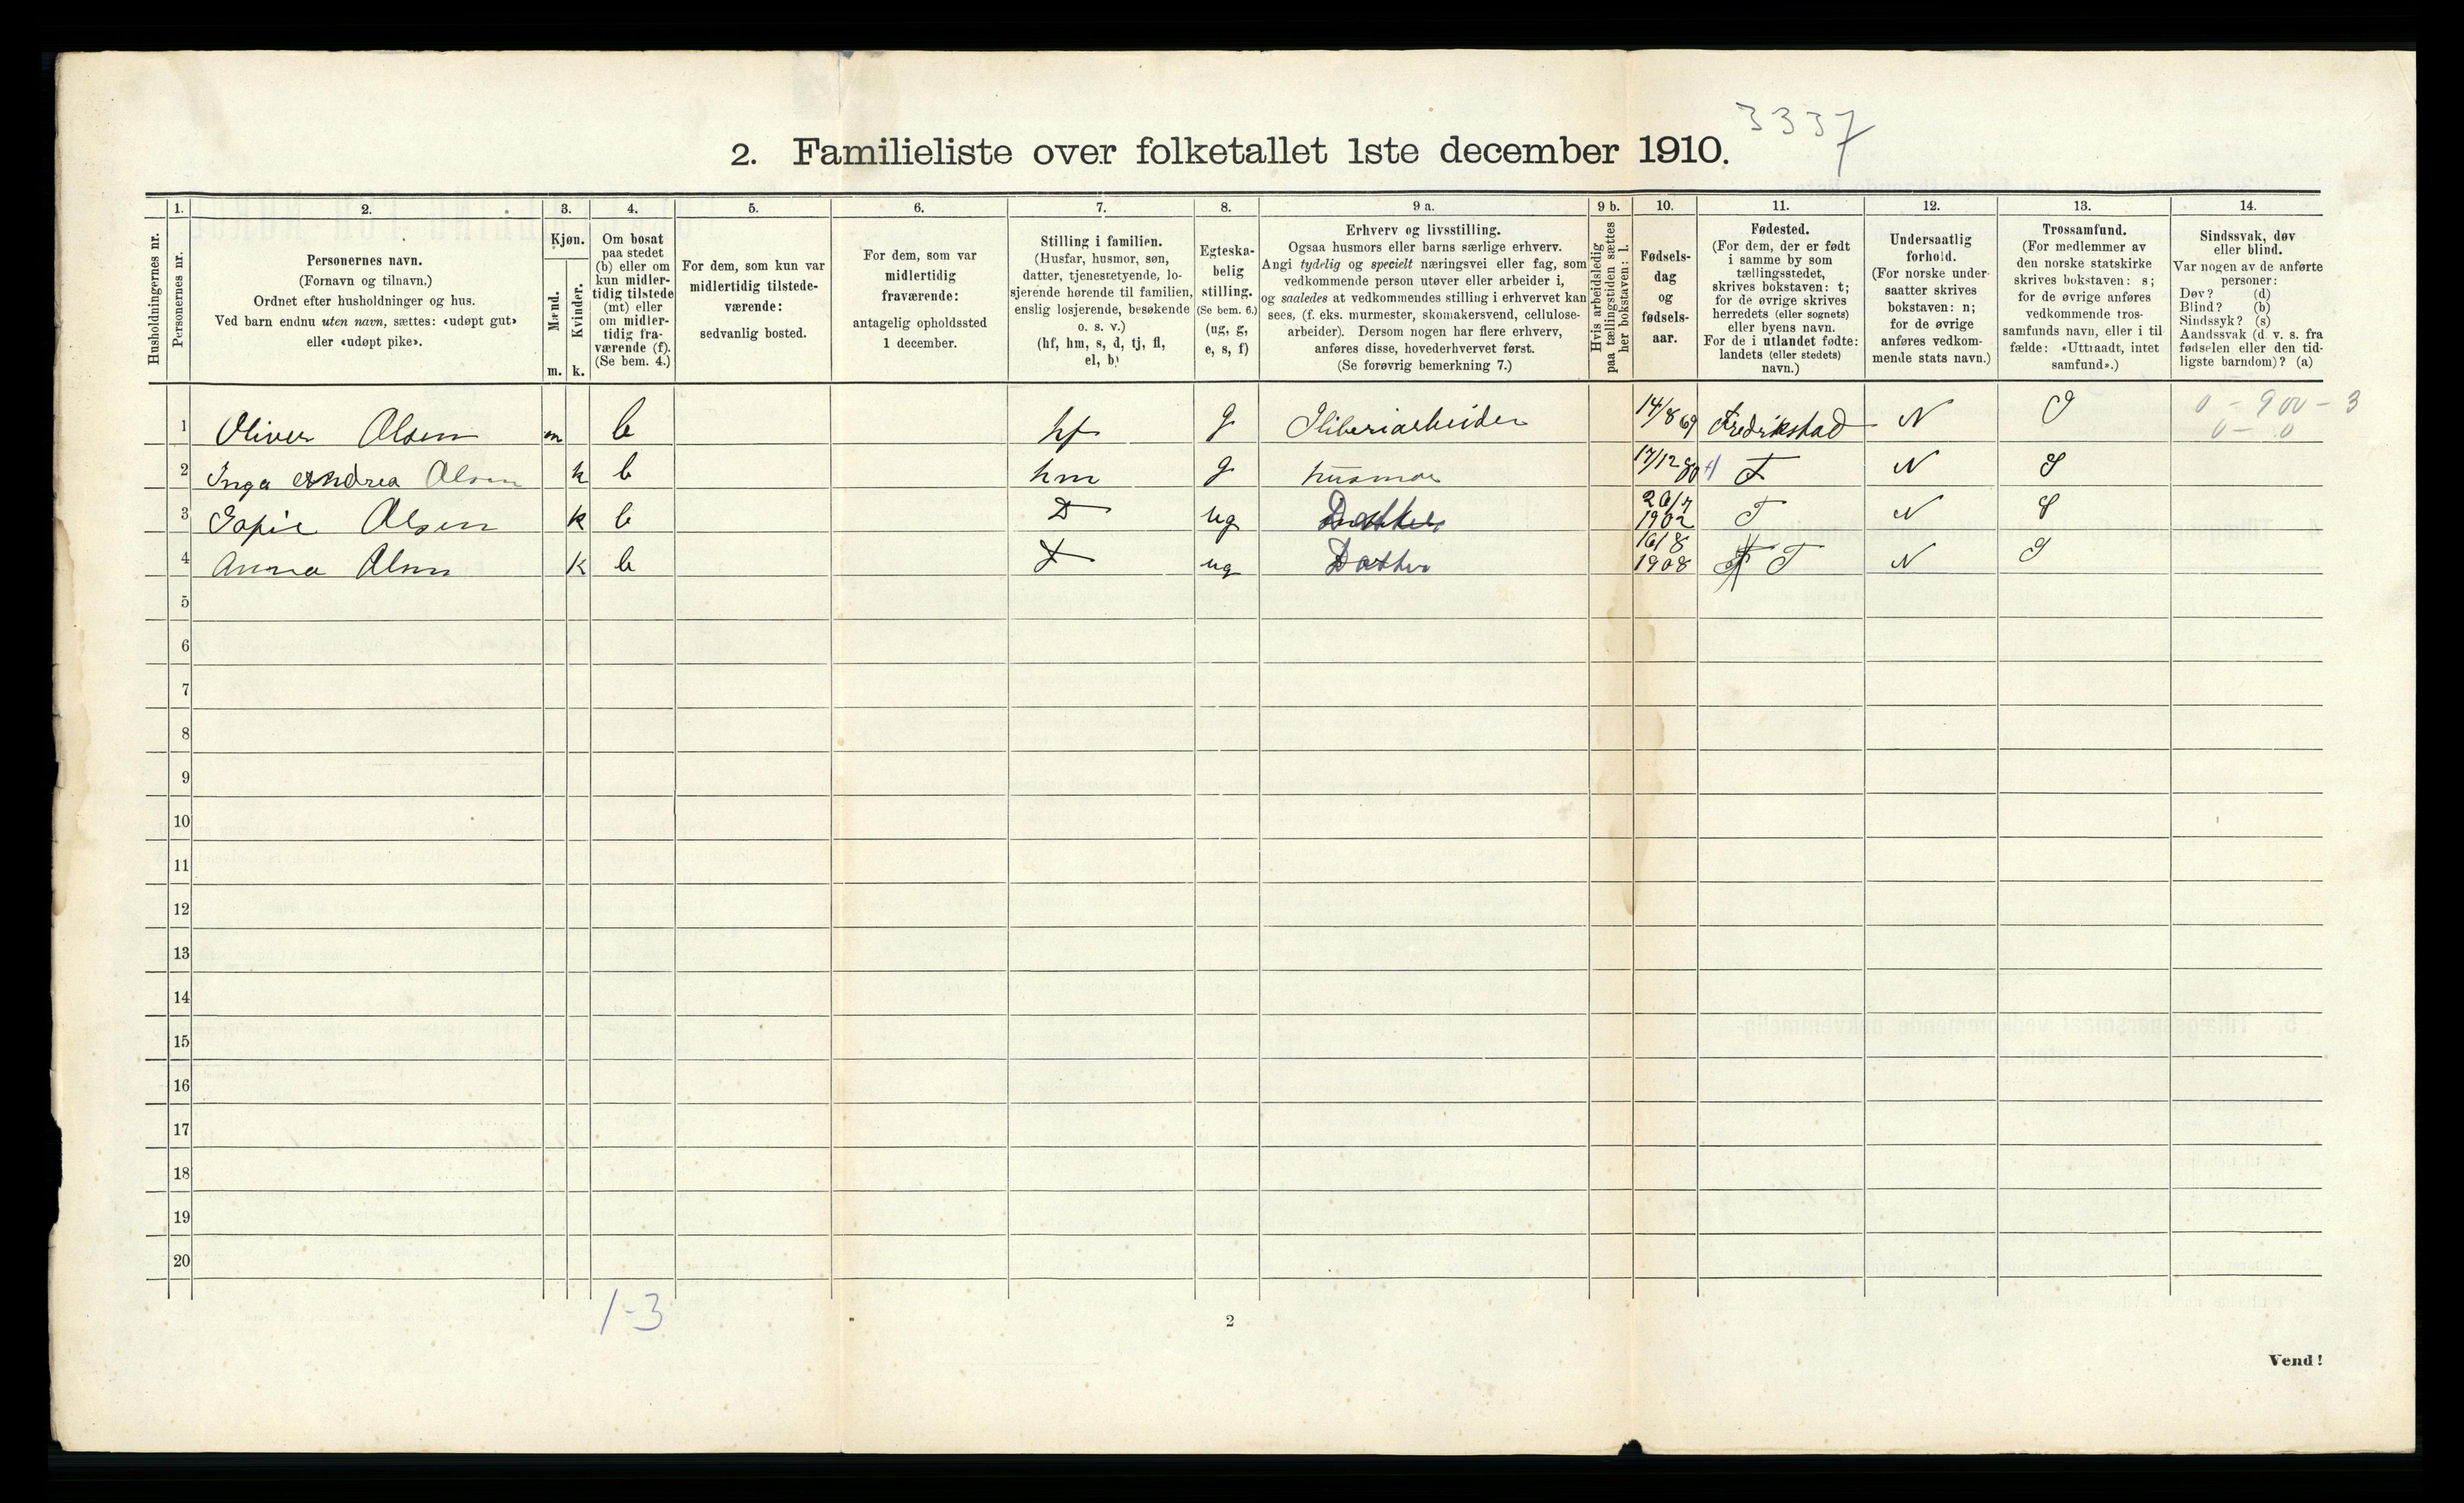 3337
2. Familieliste over folketallet 1ste december 1910.
1. 2. 3. 4. 5. 6. 7. 8. 9 a. 9 b. 10. 11. 12. 13. 14.
Husholdningernes nr.
Personernes nr.
Personernes navn.
(Fornavn og tilnavn.)
Ordnet efter husholdninger og hus.
Ved barn endnu uten navn, sættes: «udøpt gut»
eller «udøpt pike».
Kjøn.
Mænd.
Kvinder.
m. k.
Om bosat
paa stedet
(b) eller om
kun midler-
tidig tilstede
(mt) eller
om midler-
tidig fra-
værende (f).
(Se bem. 4.)
For dem, som kun var
midlertidig tilstede-
værende:
sedvanlig bosted.
For dem, som var
midlertidig
fraværende:
antagelig opholdssted
1 december.
Stilling i familien.
(Husfar, husmor, søn,
datter, tjenestetyende, lo-
sjerende hørende til familien,
enslig losjerende, besøkende
o. s. v.)
(hf, hm, s, d, tj, fl,
el, b)
Egteska-
belig
stilling.
(Se bem. 6.)
(ug, g,
e, s, f)
Erhverv og livsstilling.
Ogsaa husmors eller barns særlige erhverv.
Angi tydelig og specielt næringsvei eller fag, som
vedkommende person utøver eller arbeider i,
og saaledes at vedkommendes stilling i erhvervet kan
sees, (f. eks. murmester, skomakersvend, cellulose-
arbeider). Dersom nogen har flere erhverv,
anføres disse, hovederhvervet først.
(Se forøvrig bemerkning 7.)
Hvis arbeidsledig
paa tællingstiden sættes
her bokstaven: l.
Fødsels-
dag
og
fødsels-
aar.
Fødested.
(For dem, der er født
i samme by som
tællingsstedet,
skrives bokstaven: t;
for de øvrige skrives
herredets (eller sognets)
eller byens navn.
For de i utlandet fødte:
landets (eller stedets)
navn.)
Undersaatlig
forhold.
(For norske under-
saatter skrives
bokstaven: n;
for de øvrige
anføres vedkom-
mende stats navn.)
Trossamfund.
(For medlemmer av
den norske statskirke
skrives bokstaven: s;
for de øvrige anføres
vedkommende tros-
samfunds navn, eller i til
fælde: «Uttraadt, intet
samfund».)
Sindssvak, døv
eller blind.
Var nogen av de anførte
personer:
Døv? (d)
Blind? (b)
Sindssyk? (s)
Aandssvak (d. v. s. fra
fødselen eller den tid-
ligste barndom)? (a)
1 Oliver Olsen m b hf g Sliberiarbeider 14/8 69 Fredrikstad N S 0 - 900 - 3
0 - 0
2 Inga Andrea Olsen k b hm g husmor 17/12 80 T N S
3 Sofie Olsen k b D ug Datter 20/7 1902 T N S
4 Anna Olsen k b D ug Datter 16/8 1908 T N S
5
6
7
8
9
10
11
12
13
14
15
16
17
18
19
20
1-3
2
Vend!